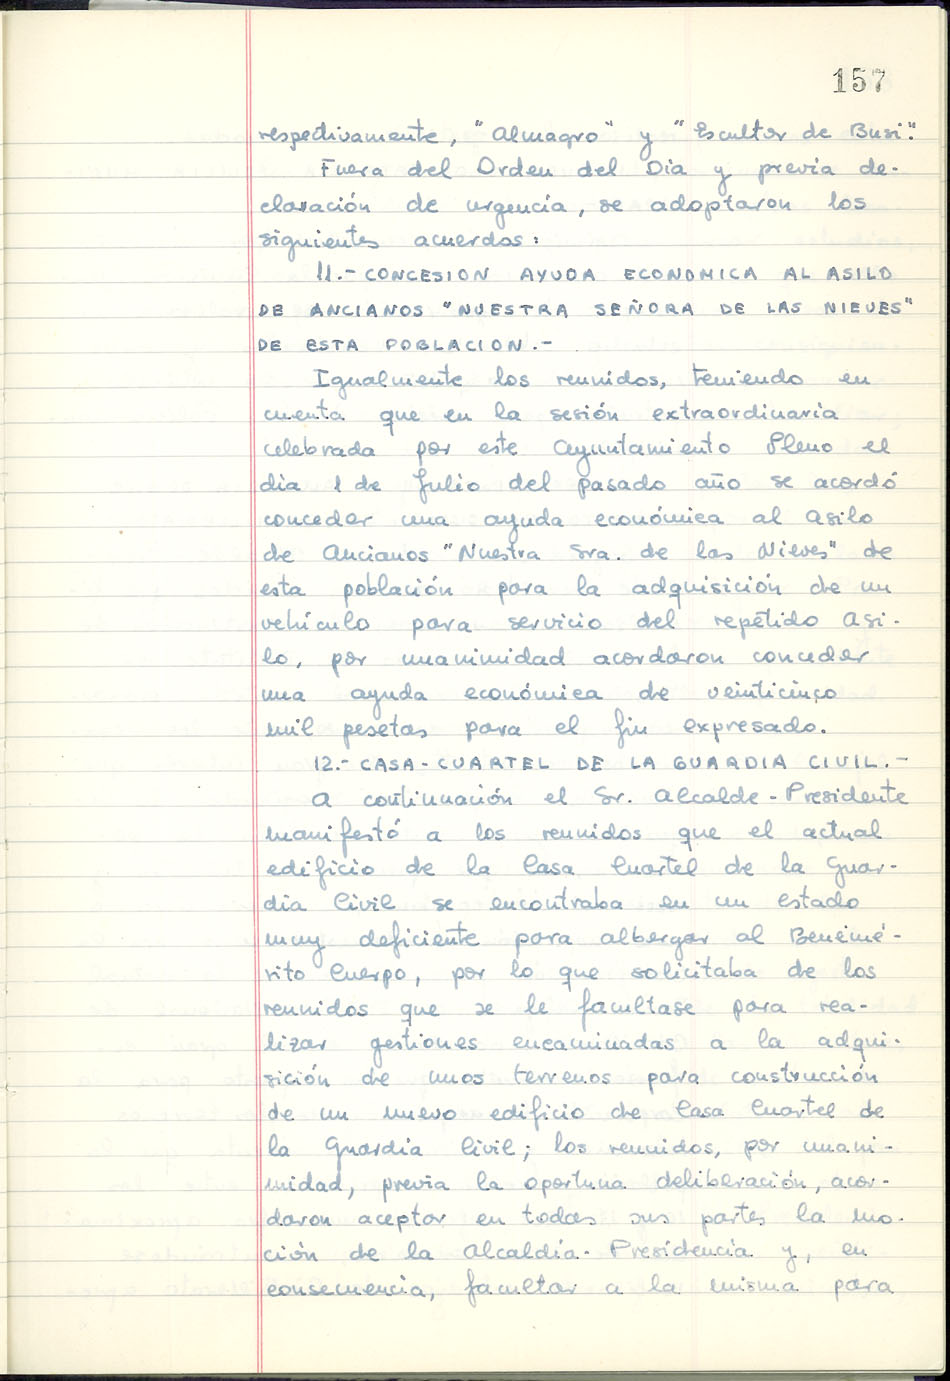 157
respectivamente, "Almagro" y "Escultor de Busi".
Fuera del Orden del Dia y previa de-
claración de urgencia, se adoptaron los
siguientes acuerdos:
11.- CONCESION AYUDA ECONOMICA AL ASILO
DE ANCIANOS "NUESTRA SEÑORA DE LAS NIEVES"
DE ESTA POBLACION.-
Igualmente los reunidos, teniendo en
cuenta que en la sesión extraordinaria
celebrada por este Ayuntamiento Pleno el
dia 1 de Julio del pasado año se acordó
conceder una ayuda económica al Asilo
de Ancianos "Nuestra Sra. de las Nieves" de
esta población para la adquisición de un
vehículo para servicio del repetido Asi-
lo, por unanimidad acordaron conceder
una ayuda económica de veinticinco
mil pesetas para el fin expresado.
12.- CASA-CUARTEL DE LA GUARDIA CIVIL.-
A continuación el Sr. Alcalde-Presidente
manifestó a los reunidos que el actual
edificio de la Casa Cuartel de la Guar-
dia Civil se encontraba en un estado
muy deficiente para albergar al Benemé-
rito Cuerpo, por lo que solicitaba de los
reunidos que se le facultase para rea-
lizar gestiones encaminadas a la adqui-
sición de unos terrenos para construcción
de un nuevo edificio de Casa Cuartel de
la Guardia Civil; los reunidos, por unani-
midad, previa la oportuna deliberación, acor-
daron aceptar en todas sus partes la mo-
ción de la Alcaldía-Presidencia y, en
consecuencia, facultar a la misma para